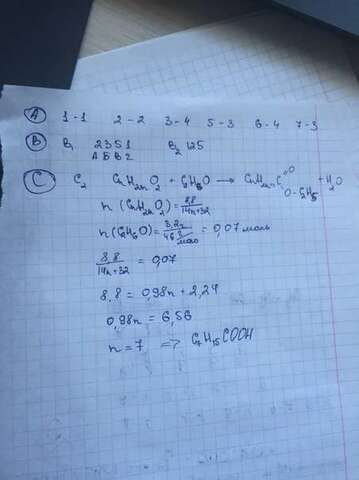 А 1-1 2-2 3-4 5-3 6-4 7-3
В В₁ 2351 В₂ 125
А Б В Г
С С₂ CnH2nO2 + C2H6O → CnH2n-1C=O O-C2H5 + H2O
n(CnH2nO2) = 8,8/14n+32
n(C2H6O) = 3,2г/46 г/моль = 0,07 моль
8,8/14n+32 = 0,07
8,8 = 0,98n + 2,24
0,98n = 6,56
n = 7 => C7H15COOH